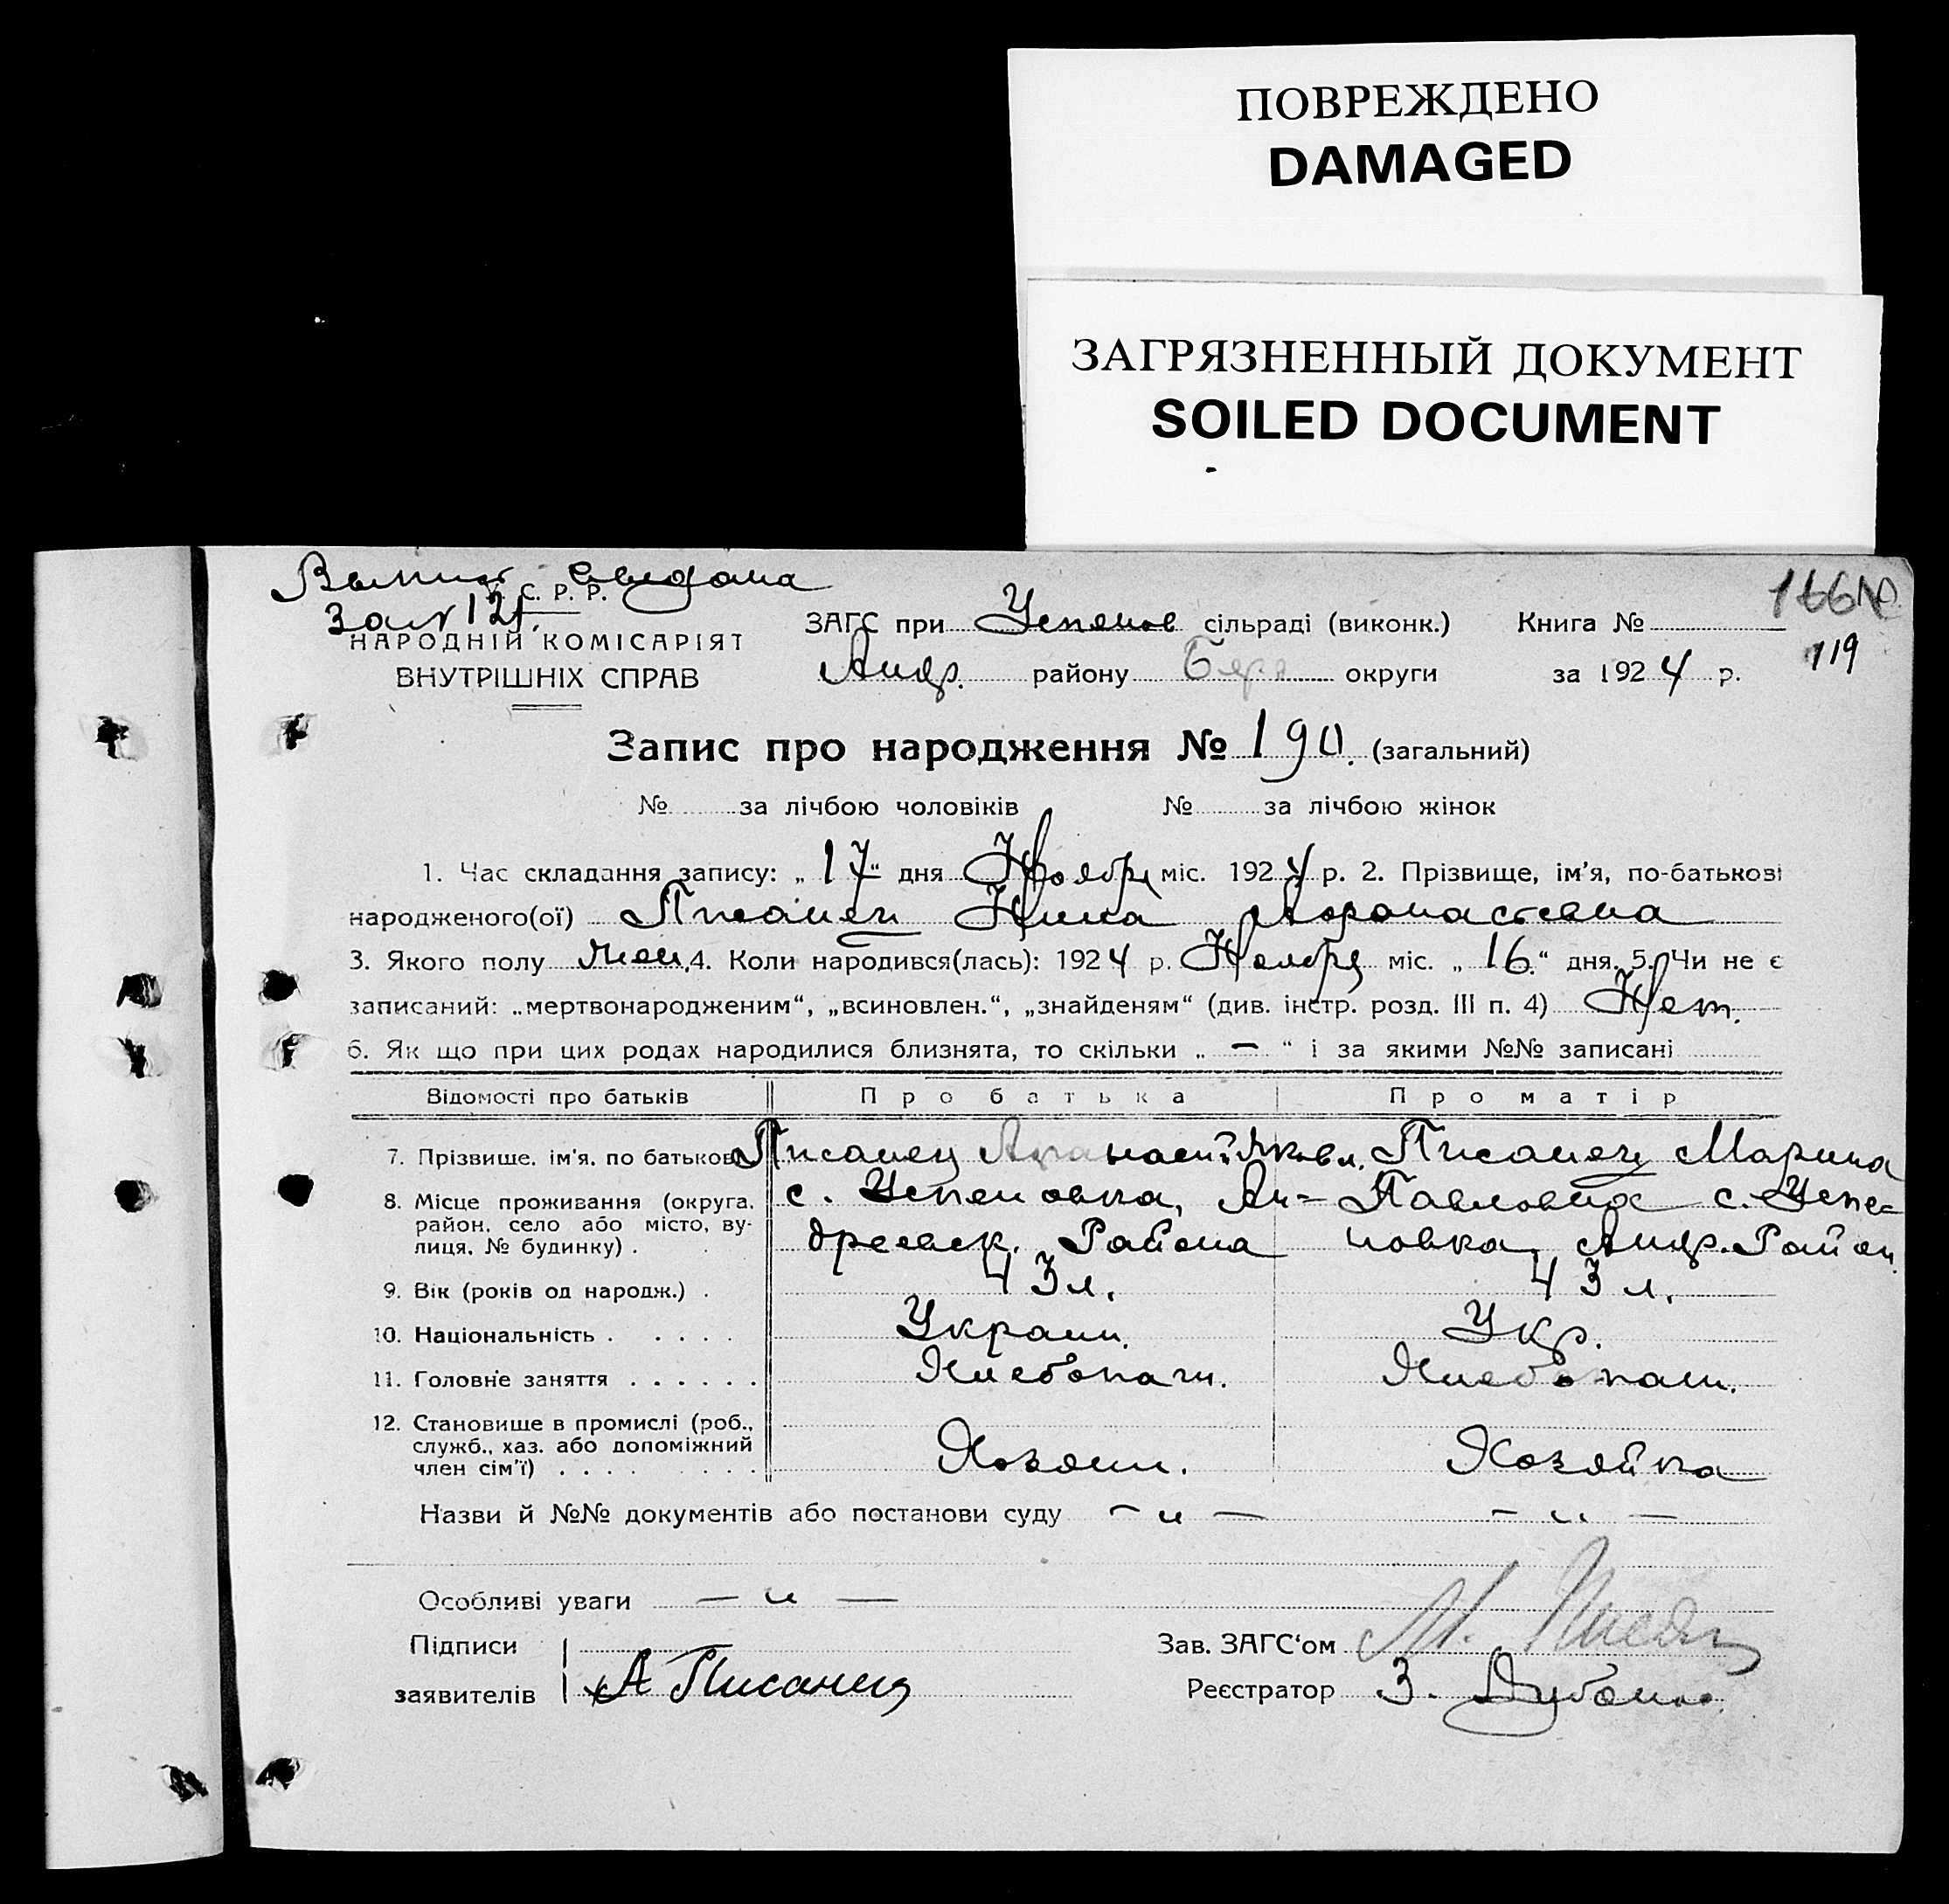 ПОВРЕЖДЕНО
DAMAGED
ЗАГРЯЗНЕННЫЙ ДОКУМЕНТ
SOILED DOCUMENT
С. Р. Р.
НАРОДНІЙ КОМІСАРІЯТ
ВНУТРІШНІХ СПРАВ
ЗАГС при Успенов сільраді (виконк.) Книга №
119
Андр. району округи за 1924 р.
Запис про народження № 190. (загальний)
№ за лічбою чоловіків № за лічбою жінок
1. Час складання запису: „17“ дня Ноября міс. 1924 р. 2. Прізвище, ім’я, по-батькові
народженого(ої) Писанец Нина Афонастевна
3. Якого полу жен. 4. Коли народився(лась): 1924 р. Ноября міс. „16.“ дня. 5. Чи не є
записаний: „мертвонародженим“, „всиновлен.“, „знайденям“ (див. інстр. розд. III п. 4) Нет.
6. Як що при цих родах народилися близнята, то скільки „—“ і за якими №№ записані
Відомості про батьків Про батька Про матір
7. Прізвище, ім’я, по батькові Писанец Афанасий Яковл. Писанец Марина
8. Місце проживання (округа, с. Успеновка, Ан= Павловна с. Успе=
район, село або місто, ву-
лиця, № будинку) . дреевск. Района новка, Андр. Район.
9. Вік (років од народж.) . 43 л. 43 л.
10. Національність . . . . . Украин. Укр.
11. Головне заняття . . . . . . Хлебопаш. Хлебопаш.
12. Становище в промислі (роб.,
служб., хаз. або допоміжний
член сім’ї) . . . . Хозяин. Хозяйка
Назви й №№ документів або постанови суду — „ — — „ —
Особливі уваги — „ —
Підписи
заявителів А Писанец
Зав. ЗАГС‘ом М.
Реєстратор З.